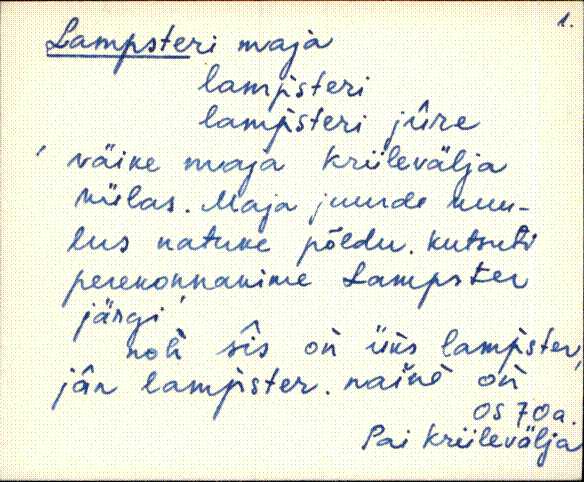 1.
Lampsteri maja
lamṕsteri
lamṕsteri jûre
' väike maja Kriilevälja
külas. Maja juurde kuu-
lus natuke põldu. Kutsuti
perekonnanime Lampster
järgi'
noh sîs oń üks lamṕster,
jân lamṕster. naine oń
OS 70a.
Pai Kriilevälja